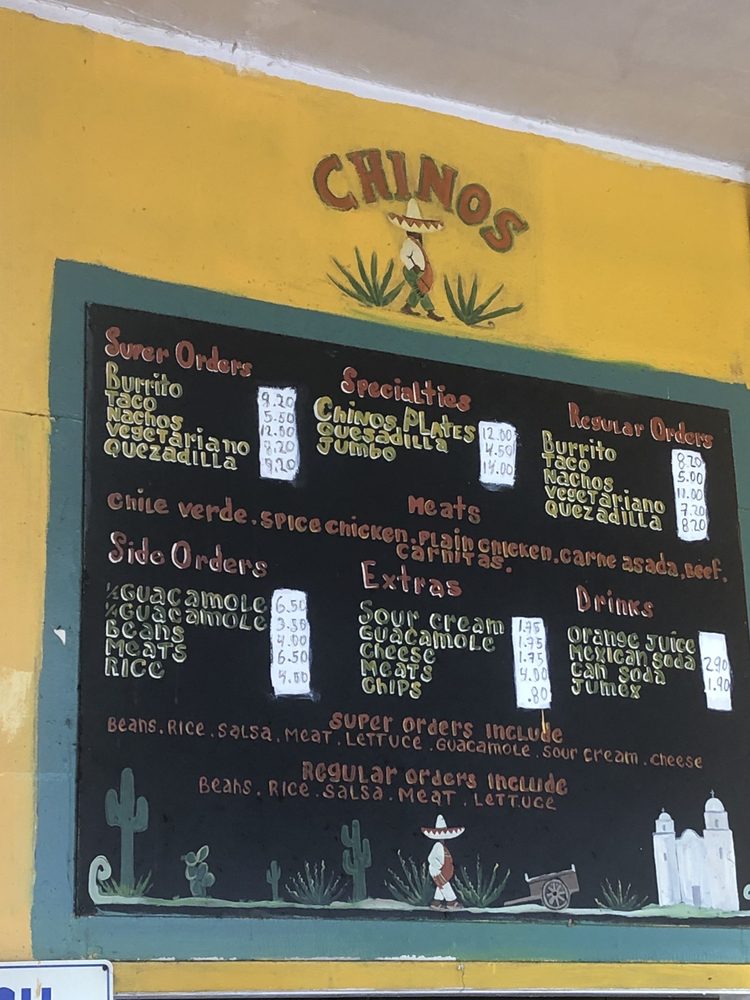 CHINOS
Super Orders
Burrito 9.20
Taco 5.50
Nachos 12.00
Vegetariano 8.20
Quezadilla 9.20
Specialties
Chinos Plates 12.00
Quesadilla 4.50
Jumbo 14.00
Regular Orders
Burrito 8.20
Taco 5.00
Nachos 11.00
Vegetariano 7.20
Quezadilla 8.20
Meats
Chile verde. Spice chicken. Plain chicken. carne asada. Beef.
carnitas.
Side Orders
Guacamole 6.50
Guacamole 3.50
Beans 4.00
Meats 6.50
Rice 4.00
Extras
Sour cream 1.75
Guacamole 1.75
Cheese 1.75
Meats 4.00
Chips .80
Drinks
Orange Juice
Mexican Soda 2.90
Can Soda 1.90
Jumex
Super orders include
Beans. Rice. Salsa. Meat. Lettuce. Guacamole. Sour cream. cheese
Regular orders include
Beans. Rice. Salsa. Meat. Lettuce